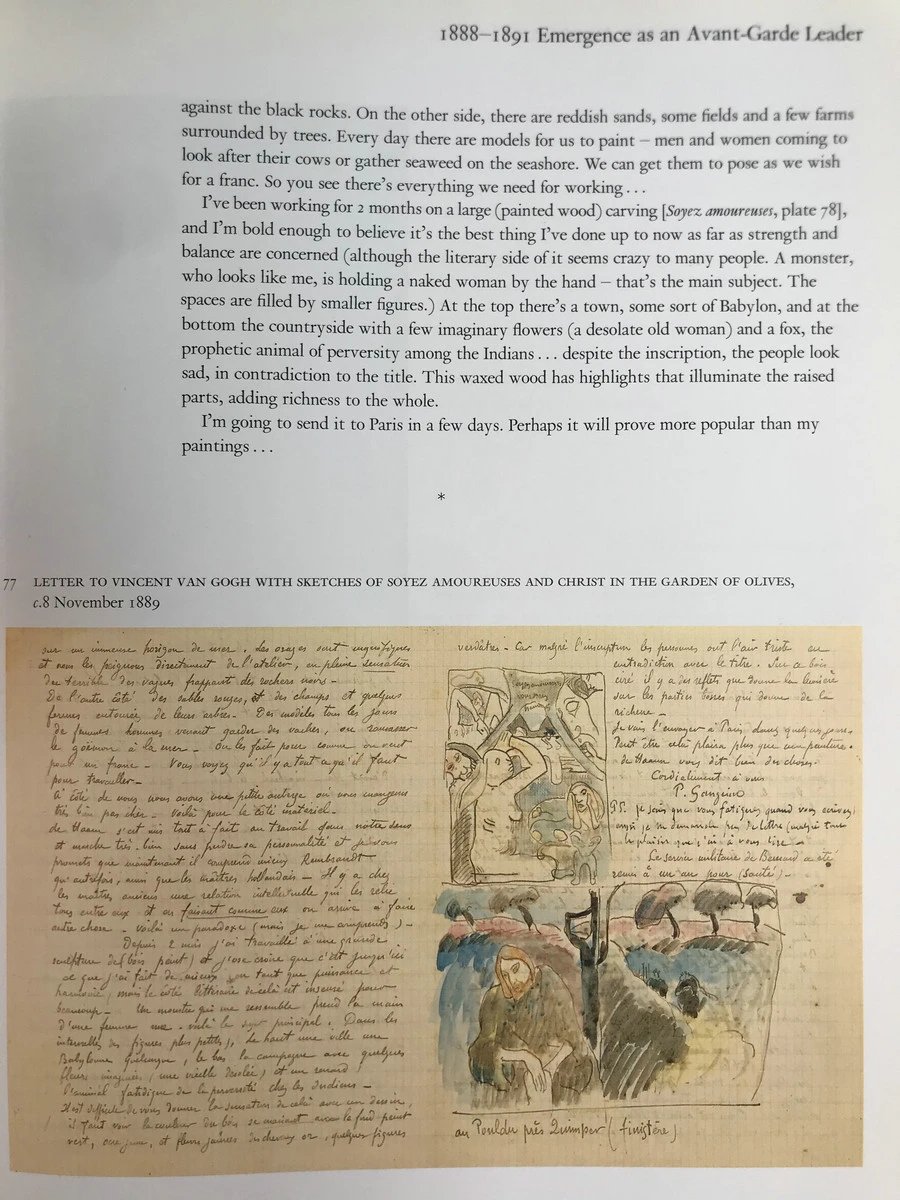 1888–1891 Emergence as an Avant-Garde Leader
against the black rocks. On the other side, there are reddish sands, some fields and a few farms
surrounded by trees. Every day there are models for us to paint – men and women coming to
look after their cows or gather seaweed on the seashore. We can get them to pose as we wish
for a franc. So you see there's everything we need for working . . .
I've been working for 2 months on a large (painted wood) carving [Soyez amoureuses, plate 78],
and I'm bold enough to believe it's the best thing I've done up to now as far as strength and
balance are concerned (although the literary side of it seems crazy to many people. A monster,
who looks like me, is holding a naked woman by the hand – that's the main subject. The
spaces are filled by smaller figures.) At the top there's a town, some sort of Babylon, and at the
bottom the countryside with a few imaginary flowers (a desolate old woman) and a fox, the
prophetic animal of perversity among the Indians . . . despite the inscription, the people look
sad, in contradiction to the title. This waxed wood has highlights that illuminate the raised
parts, adding richness to the whole.
I'm going to send it to Paris in a few days. Perhaps it will prove more popular than my
paintings . . .
*
77 LETTER TO VINCENT VAN GOGH WITH SKETCHES OF SOYEZ AMOUREUSES AND CHRIST IN THE GARDEN OF OLIVES,
c.8 November 1889
sur un immense horizon de mer. Les orages sont magnifiques
et nous les peignons directement de l'atelier, en pleine sensation
du terrible des vagues frappant des rochers noirs –
De l'autre côté des sables rouges, et des champs et quelques
fermes entourées de leurs arbres – Des modèles tous les jours
de femmes hommes venant garder des vaches, ou ramasser
le goëmon à la mer – On les fait poser comme on veut
pour un franc – Vous voyez qu'il y a tout ce qu'il faut
pour travailler –
A côté de nous nous avons une petite auberge où nous mangeons
très bien pas cher – Voilà pour le côté matériel –
de Haan s'est mis tout à fait au travail dans notre sens
et marche très bien sans perdre sa personnalité et je vous
promets que maintenant il comprend mieux Rembrandt
qu'autrefois, ainsi que les maîtres hollandais – Il y a chez
les maîtres anciens une relation intellectuelle qui les relie
tous entre eux et en faisant comme eux on arrive à faire
autre chose – Voilà un paradoxe (mais je me comprends) –
Depuis 2 mois j'ai travaillé à une grande
sculpture (bois peint) et j'ose croire que c'est jusqu'ici
ce que j'ai fait de mieux en tant que puissance et
harmonie, mais le côté littéraire de cela est insensé pour
beaucoup – Un monstre qui me ressemble prend la main
d'une femme nue – voilà le sujet principal. Dans les
intervalles des figures plus petites). Le haut une ville une
Babylone quelconque, le bas la campagne avec quelques
fleurs imaginées (une vieille désolée) et un renard
l'animal fatidique de la perversité chez les Indiens –
Il est difficile de vous donner la sensation de cela avec un dessin,
il faut voir la couleur du bois se mariant avec le fond peint
vert, ocre jaune, et fleurs jaunes des cheveux or, quelques figures
verdatres – Car malgré l'inscription les personnes ont l'air triste en
contradiction avec le titre. Sur ce bois
ciré il y a des reflets que donne la lumière
sur les parties bosses qui donne de la
richesse –
Je vais l'envoyer à Paris dans quelques jours
Peut être cela plaira plus que ma peinture.
de Haan vous dit bien des choses.
Cordialement à vous
P. Gauguin
P.S. je sais que vous fatiguez quand vous écrivez
aussi je ne demande pas de lettre (malgré tout
le plaisir que j'ai à vous lire –
Le service militaire de Bernard a été
remis à un an pour (santé) –
soyez amoureuses
vous serez
heureuses
au Pouldu près Quimper (finistère)